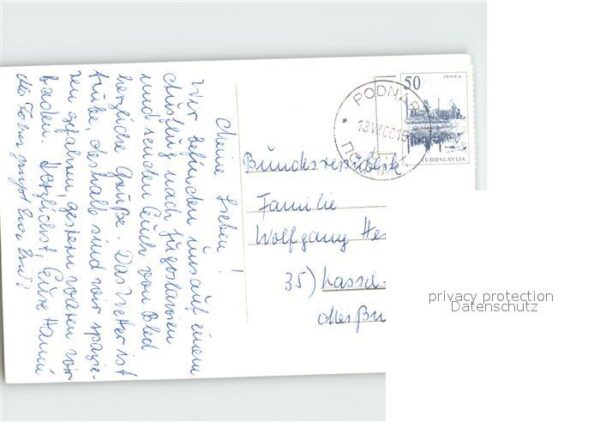 Meine Lieben!
Wir befinden uns auf einem
Ausflug nach Jugoslawien
und senden Euch von Bled
herzliche Grüße. Das Wetter ist
trübe, deshalb sind wir spazie-
ren gefahren, gestern waren wir
baden. Herzlichst, Eure Hanni
50
ZENICA
JUGOSLAVIJA
PODNART
Bundesrepublik
Familie
Wolfgang He
35) Kassel-
privacy protection
Datenschutz